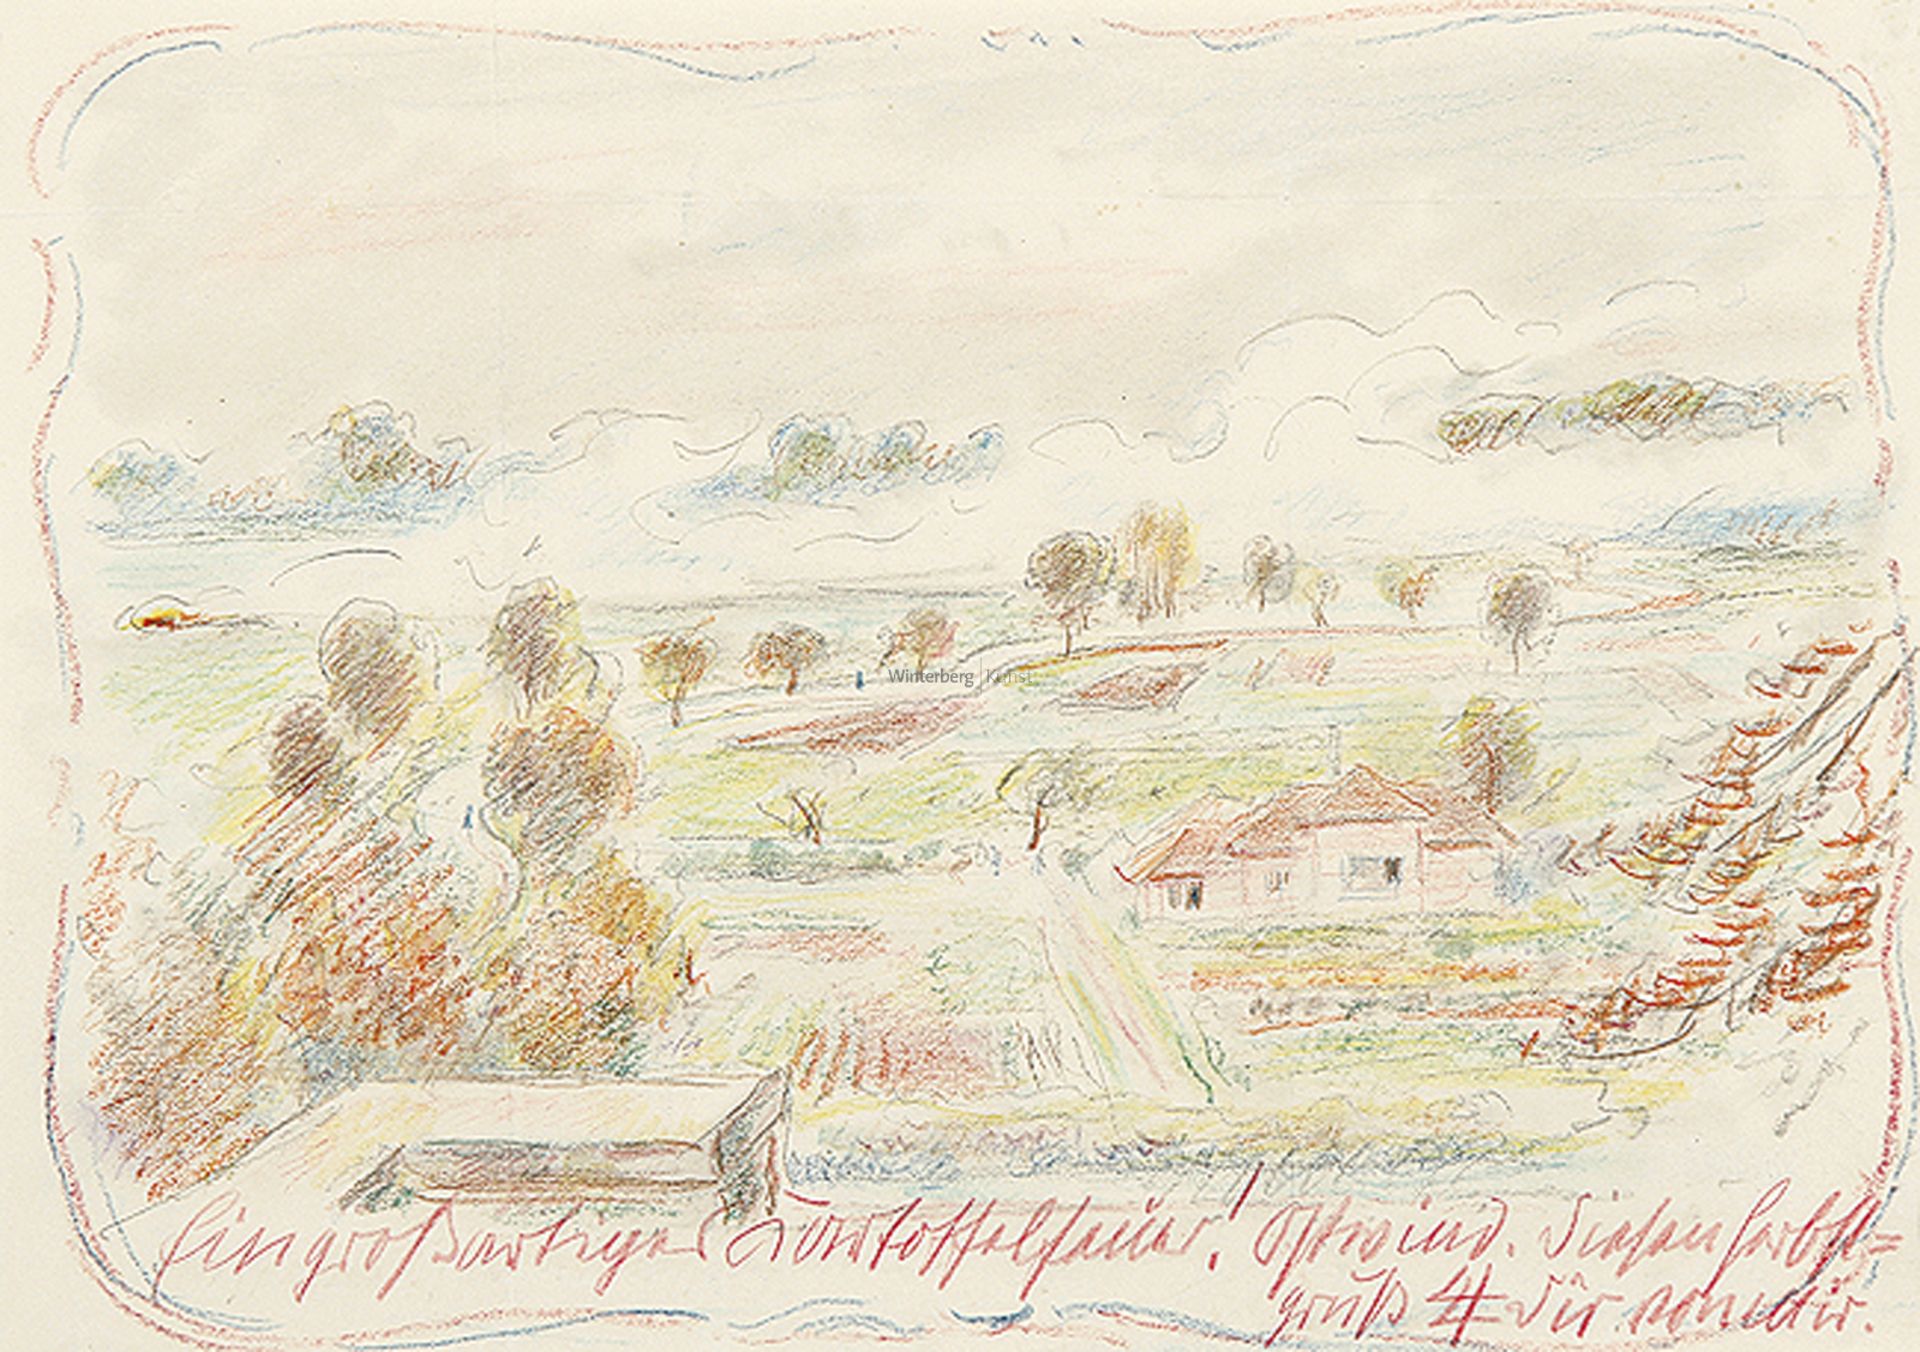 Winterberg | Kunst
Ein großartiges Kartoffelfeuer! Ostwind. Diesen Herbst=
gruß Dir von mir.